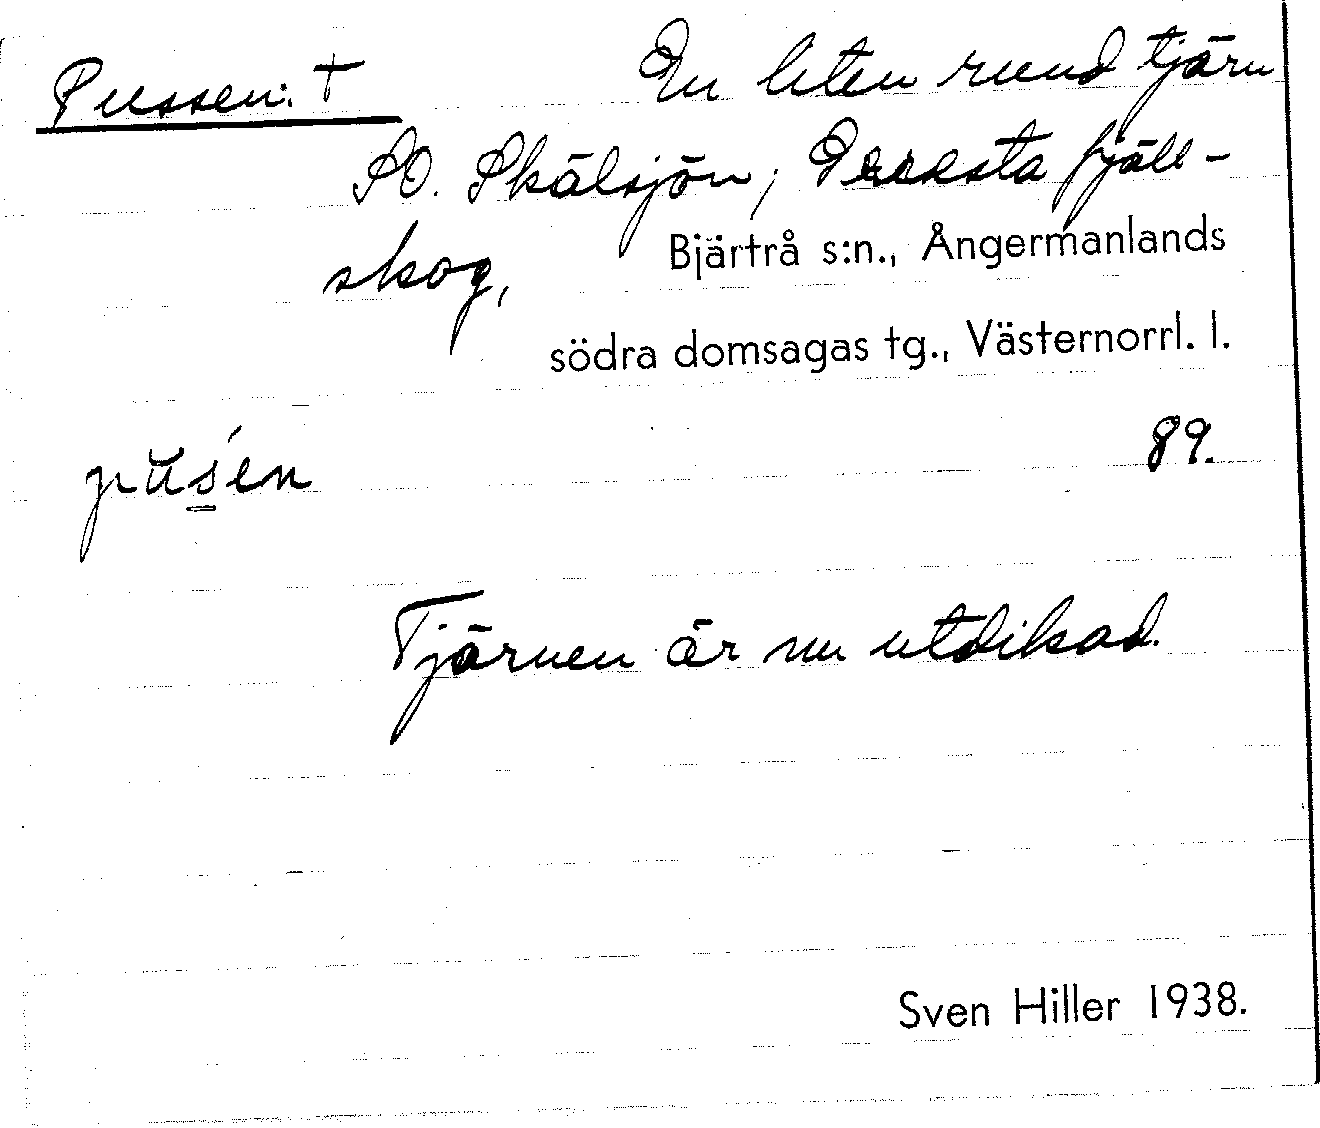 Pussen: † En liten rund tjärn
SO. Skälsjön, fjäll-
skog, Bjärtrå s:n., Ångermanlands
södra domsagas tg., Västernorrl. l.
89.
Tjärnen är nu utdikad.
Sven Hiller 1938.